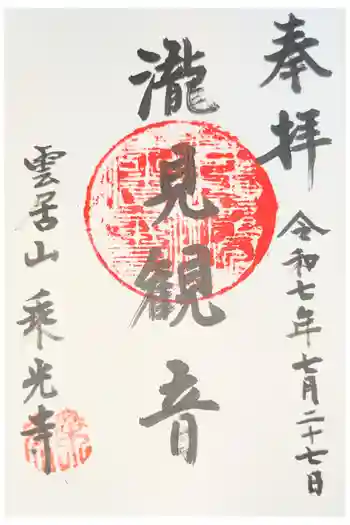 奉拝
令和七年七月二十七日
瀧見観音
雲居山 乘光寺